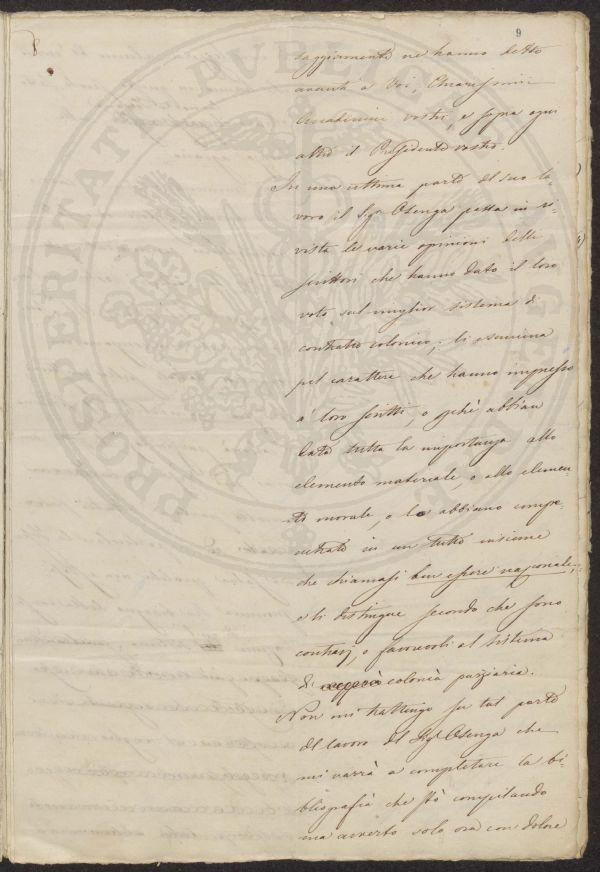 9
saggiamente ne hanno detto
avanti a Voi, Chiarissimi
Accademici vostri, e sopra ogni
altro il Presidente vostro.
In una ultima parte del suo la-
voro il Sgr Osenga passa in ri-
vista le varie opinioni delli
scrittori che hanno dato il loro
voto sul miglior sistema di
contratto colonico; li esamina
pel carattere che hanno impresso
a' loro scritti, o perchè abbian
data tutta la importanza allo
elemento materiale, o allo elemen-
to morale, o lo abbiano compe-
netrato in un tutto insieme
che chiamasi ben essere nazionale;
e li distingue secondo che sono
contrarj, o favorevoli al sistema
di colonia parziaria.
Non mi trattengo su tal parte
del lavoro del Sgr Osenga che
mi varrà a completare la bi-
bliografia che stò compilando
ma avverto solo ora con dolore
PROSPERITATI PUBLICAE AUGENDAE